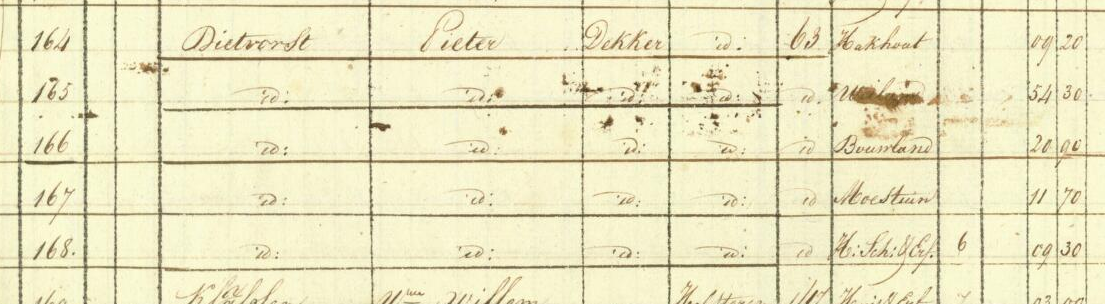 164 Dietvorst Pieter Dekker id: 63 Hakhout 09 20
165 id: id: id: id: id. Weiland 54 30
166 id: id: id: id: id Bouwland 20 90
167 id: id: id: id: id Moestuin 11 70
168. id: id: id: id: id H: Sch: & Erf. 6 09 30
Willem